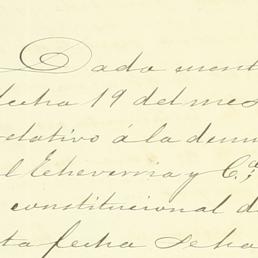 Dada cuent
fecha 19 del mes
relativo á la denun
l Echeverria y C.ª;
constitucional d
ta fecha se ha